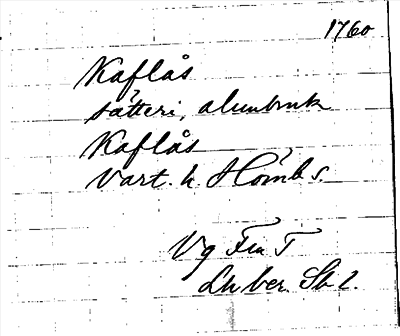 1760
Kaflås
sätteri, alunbruk
Kaflås
Vart. h. Hömb s.
Vg Fra T
Lh ber. Sb 2.